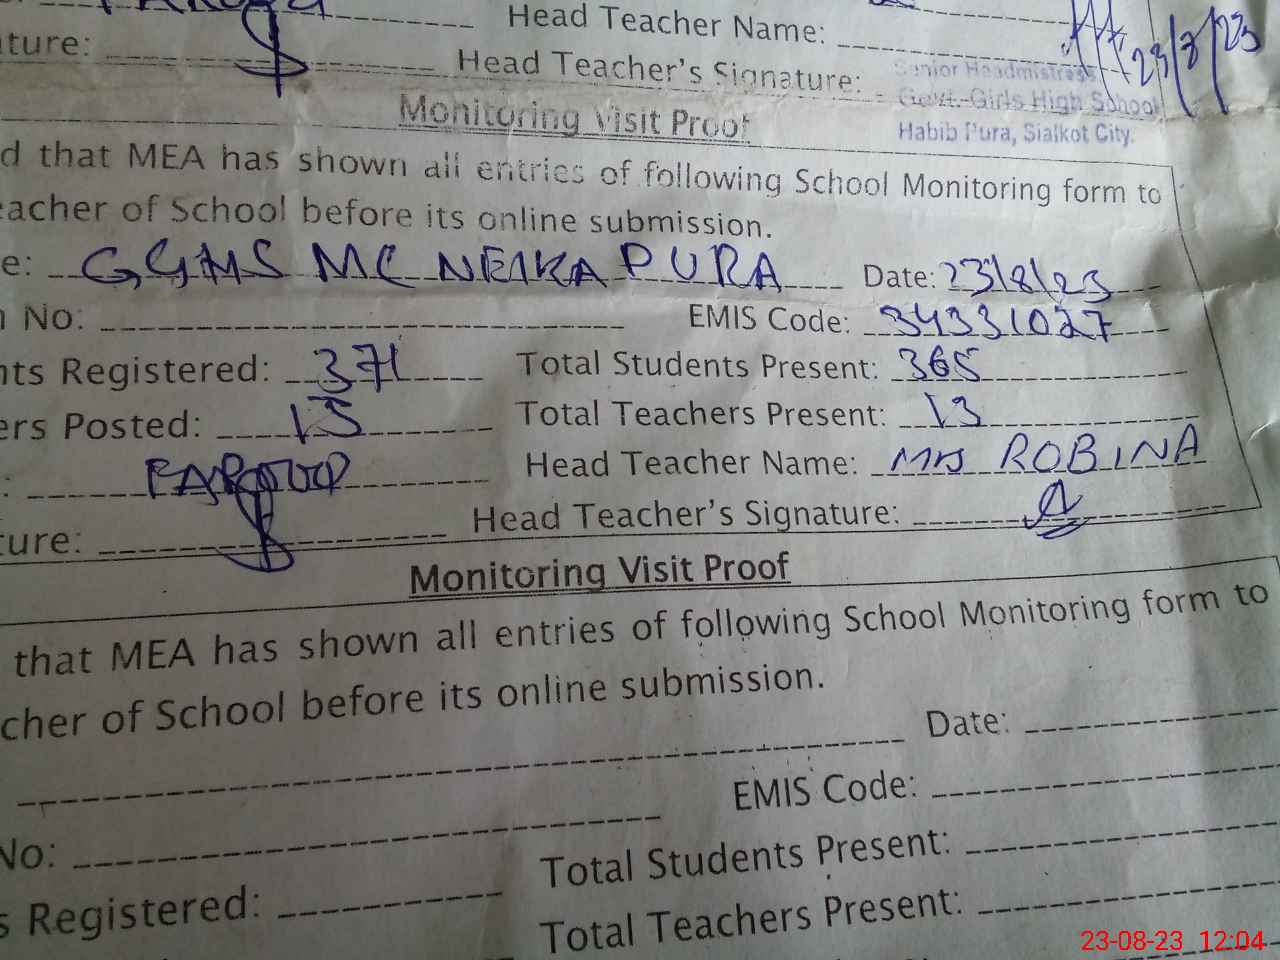 Head Teacher Name:
23/8/23
ture: Head Teacher's Signature:
Senior Headmistress
Govt. Girls High School
Habib Pura, Sialkot City.
Monitoring Visit Proof
d that MEA has shown all entries of following School Monitoring form to
eacher of School before its online submission.
e: GGHS MC NEIKA PURA Date: 23/8/23
No: EMIS Code: 34331027
nts Registered: 371 Total Students Present: 365
ers Posted: 15 Total Teachers Present: 13
: FAROOQ Head Teacher Name: Mrs ROBINA
ture: Head Teacher's Signature:
Monitoring Visit Proof
that MEA has shown all entries of following School Monitoring form to
cher of School before its online submission.
Date:
EMIS Code:
No: Total Students Present:
s Registered: Total Teachers Present:
23-08-23 12:04